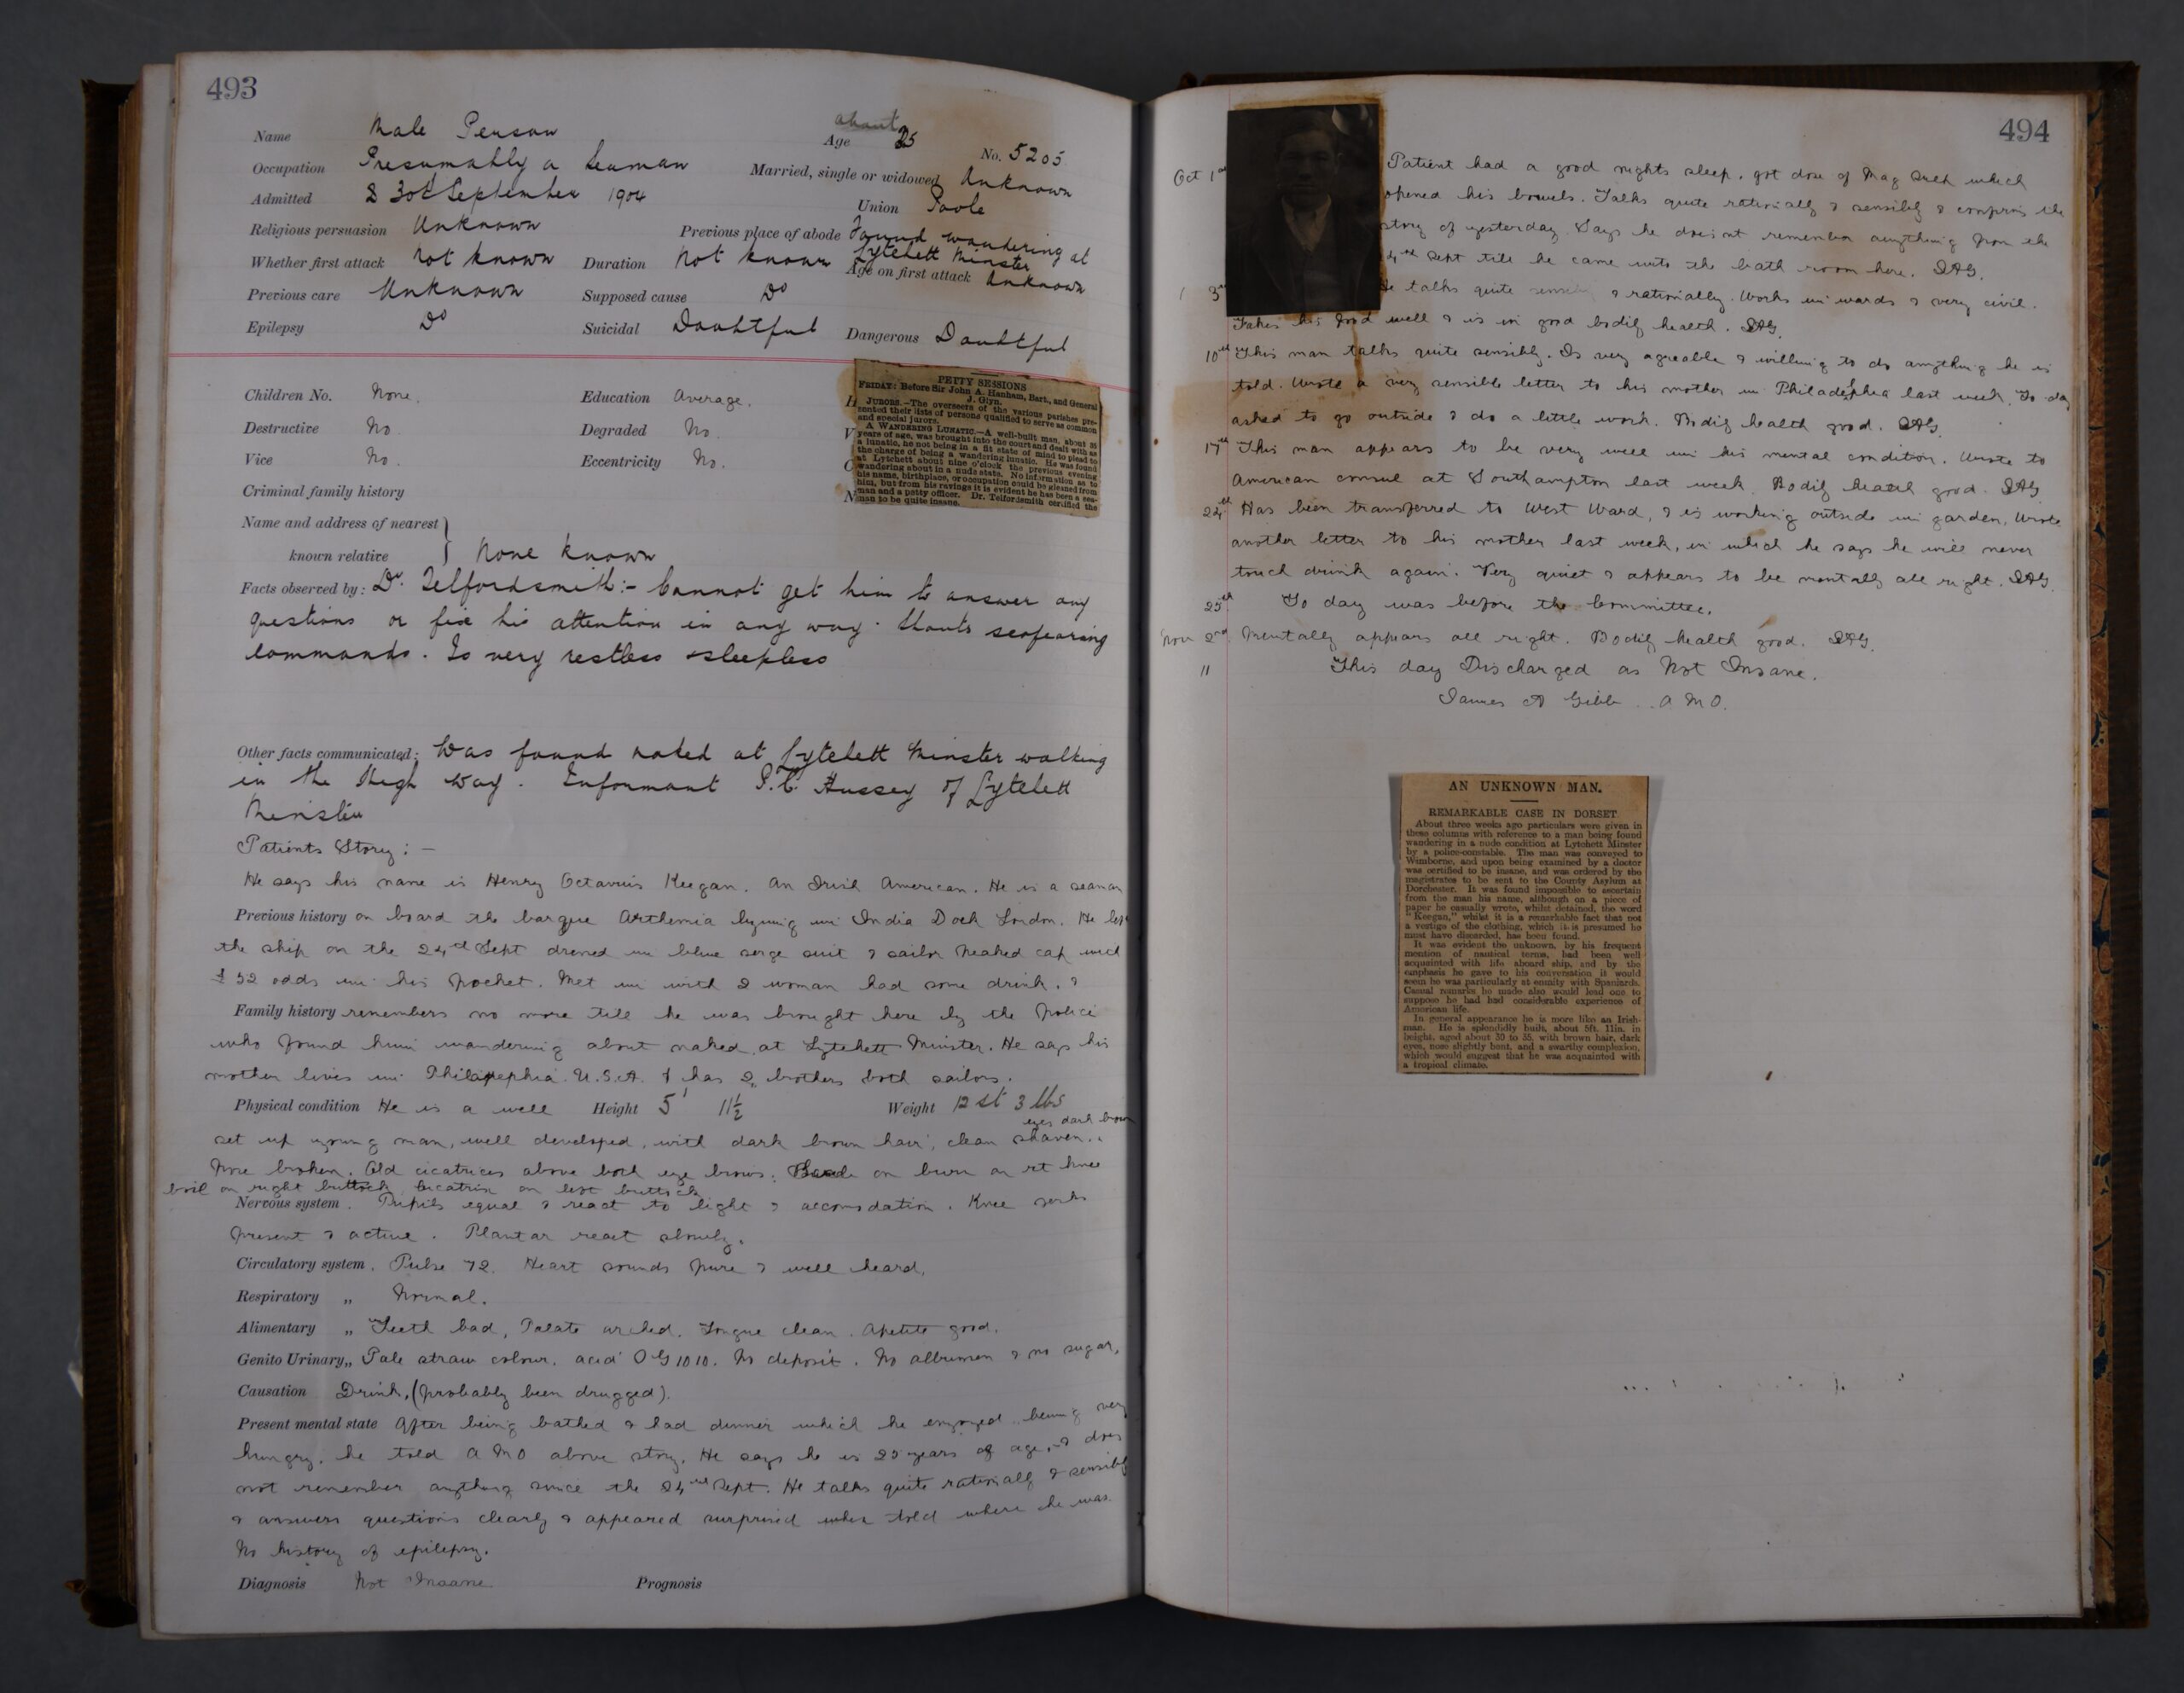 493
Name Male Person about Age 25 No. 5205
Occupation Presumably a Seaman Married, single or widowed Unknown
Admitted 30th September 1904 Union Poole
Religious persuasion Unknown Previous place of abode Found wandering at
Lytchett Minster
Whether first attack Not known Duration Not known Age on first attack Unknown
Previous care Unknown Supposed cause Do
Epilepsy Do Suicidal Doubtful Dangerous Doubtful
Children No. None. Education Average.
Destructive No. Degraded No.
Vice No. Eccentricity No.
Criminal family history
Name and address of nearest
known relative None known
PETTY SESSIONS
FRIDAY: Before Sir John A. Hanham, Bart., and General
J. Glyn.
JURORS.—The overseers of the various parishes pre-
sented their lists of persons qualified to serve as common
and special jurors.
A WANDERING LUNATIC.—A well-built man, about 35
years of age, was brought into the court and dealt with as
a lunatic, he not being in a fit state of mind to plead to
the charge of being a wandering lunatic. He was found
at Lytchett about nine o'clock the previous evening
wandering about in a nude state. No information as to
his name, birthplace, or occupation could be gleaned from
him, but from his ravings it is evident he has been a sea-
man and a petty officer. Dr. Telfordsmith certified the
man to be quite insane.
Facts observed by: Dr. Telfordsmith:- Cannot get him to answer any
questions or fix his attention in any way. Shouts seafearing
commands. Is very restless & sleepless
Other facts communicated: Was found naked at Lytchett Minster walking
in the High way. Informant P.C. Hussey of Lytchett
Minster
Patients Story: —
He says his name is Henry Octavius Keegan. An Irish American. He is a seaman
Previous history on board the barque Arthemia lying in India Dock London. He left
the ship on the 24th Sept dressed in blue serge suit & sailor Peaked cap with
£32 odds in his pocket. Met in with 2 woman had some drink, &
Family history remembers no more till he was brought here by the Police
who found him wandering about naked at Lytchett Minster. He says his
mother lives in Philapephia. U.S.A. & has 2 brothers both sailors.
Physical condition He is a well Height 5' 11½ Weight 12 st 3 lbs
eyes dark brown
set up young man, well developed, with dark brown hair, clean shaven.
Nose broken. Old cicatrices above both eye brows. on burn on rt knee
boil on right buttock cicatrix on left buttock
Nervous system. Pupils equal & react to light & accomodation. Knee jerks
present & active. Plantar react slowly.
Circulatory system. Pulse 72. Heart sounds pure & well heard,
Respiratory „ Normal.
Alimentary „ Teeth bad, Palate arched. Tongue clean. Apetite good.
Genito Urinary „ Pale straw colour. acid 1010. No deposit. No albumen & no sugar,
Causation Drink, (probably been drugged).
Present mental state After being bathed & had dinner which he enjoyed, being very
hungry, he told A M O above story. He says he is 25 years of age, & does
not remember anything since the 24th Sept. He talks quite rationally & sensibly
& answers questions clearly & appeared surprised when told where he was.
No history of epilepsy.
Diagnosis Not Insane. Prognosis
494
Oct 1st Patient had a good nights sleep, got dose of Mag Sulph which
opened his bowels. Talks quite rationally & sensibly & confirms the
story of yesterday. Says he doesnt remember anything from the
24th Sept till he came into the bath room here. JAG.
3rd He talks quite sensibly & rationally. Works in wards & very civil.
Takes his food well & is in good bodily health. JAG.
10th This man talks quite sensibly. Is very agreable & willing to do anything he is
told. Wrote a very sensible letter to his mother in Philadelphia last week. To day
asked to go outside & do a little work. Bodily health good. JAG.
17th This man appears to be very well in his mental condition. Wrote to
American consul at Southampton last week. Bodily health good. JAG
24th Has been transferred to West Ward, & is working outside in garden, Wrote
another letter to his mother last week, in which he says he will never
touch drink again. Very quiet & appears to be mentally all right. JAG.
25th To day was before the Committee.
Nov 2nd Mentally appears all right. Bodily health good. JAG.
11 This day Discharged as Not Insane.
James A Gibb. A M O.
AN UNKNOWN MAN.
REMARKABLE CASE IN DORSET
About three weeks ago particulars were given in
these columns with reference to a man being found
wandering in a nude condition at Lytchett Minster
by a police-constable. The man was conveyed to
Wimborne, and upon being examined by a doctor
was certified to be insane, and was ordered by the
magistrates to be sent to the County Asylum at
Dorchester. It was found impossible to ascertain
from the man his name, although on a piece of
paper he casually wrote, whilst detained, the word
"Keegan," whilst it is a remarkable fact that not
a vestige of the clothing, which it is presumed he
must have discarded, has been found.
It was evident the unknown, by his frequent
mention of nautical terms, had been well
acquainted with life aboard ship, and by the
emphasis he gave to his conversation it would
seem he was particularly at enmity with Spaniards.
Casual remarks he made also would lead one to
suppose he had had considerable experience of
American life.
In general appearance he is more like an Irish-
man. He is splendidly built, about 5ft. 11in. in
height, aged about 30 to 35, with brown hair, dark
eyes, nose slightly bent, and a swarthy complexion,
which would suggest that he was acquainted with
a tropical climate.